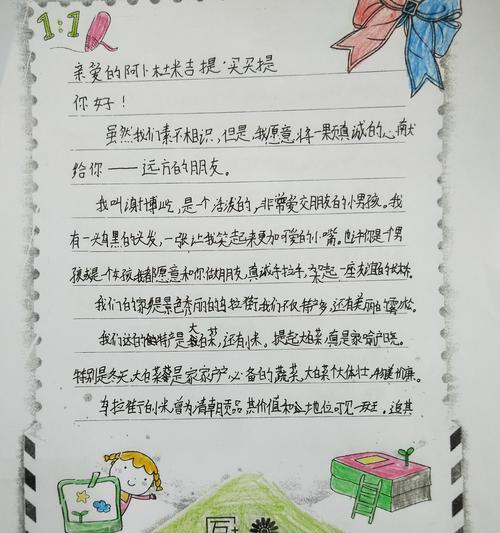 1:1
亲爱的阿卜杜米吉提·买买提
你好！
虽然我们素不相识，但是，我愿意将一颗真诚的心献
给你——远方的朋友。
我叫谢博屹，是一个活泼的，非常爱交朋友的小男孩。我
有一头乌黑的头发，一张让我笑起来更加可爱的小嘴。也许你是个男
孩或是个女孩我都愿意和你做朋友，真诚手拉手，架起一座友谊的桥梁。
我们的家乡是景色秀丽的乌拉街我们不仅特产多，还有美丽的雾凇。
我们这的特产是大白菜，还有小米。提起大白菜真是家喻户晓。
特别是冬天，大白菜是家家户户必备的蔬菜，大白菜个体壮，物美价廉。
乌拉街的小米，曾为清朝贡品 其价值和地位可见一斑。追其